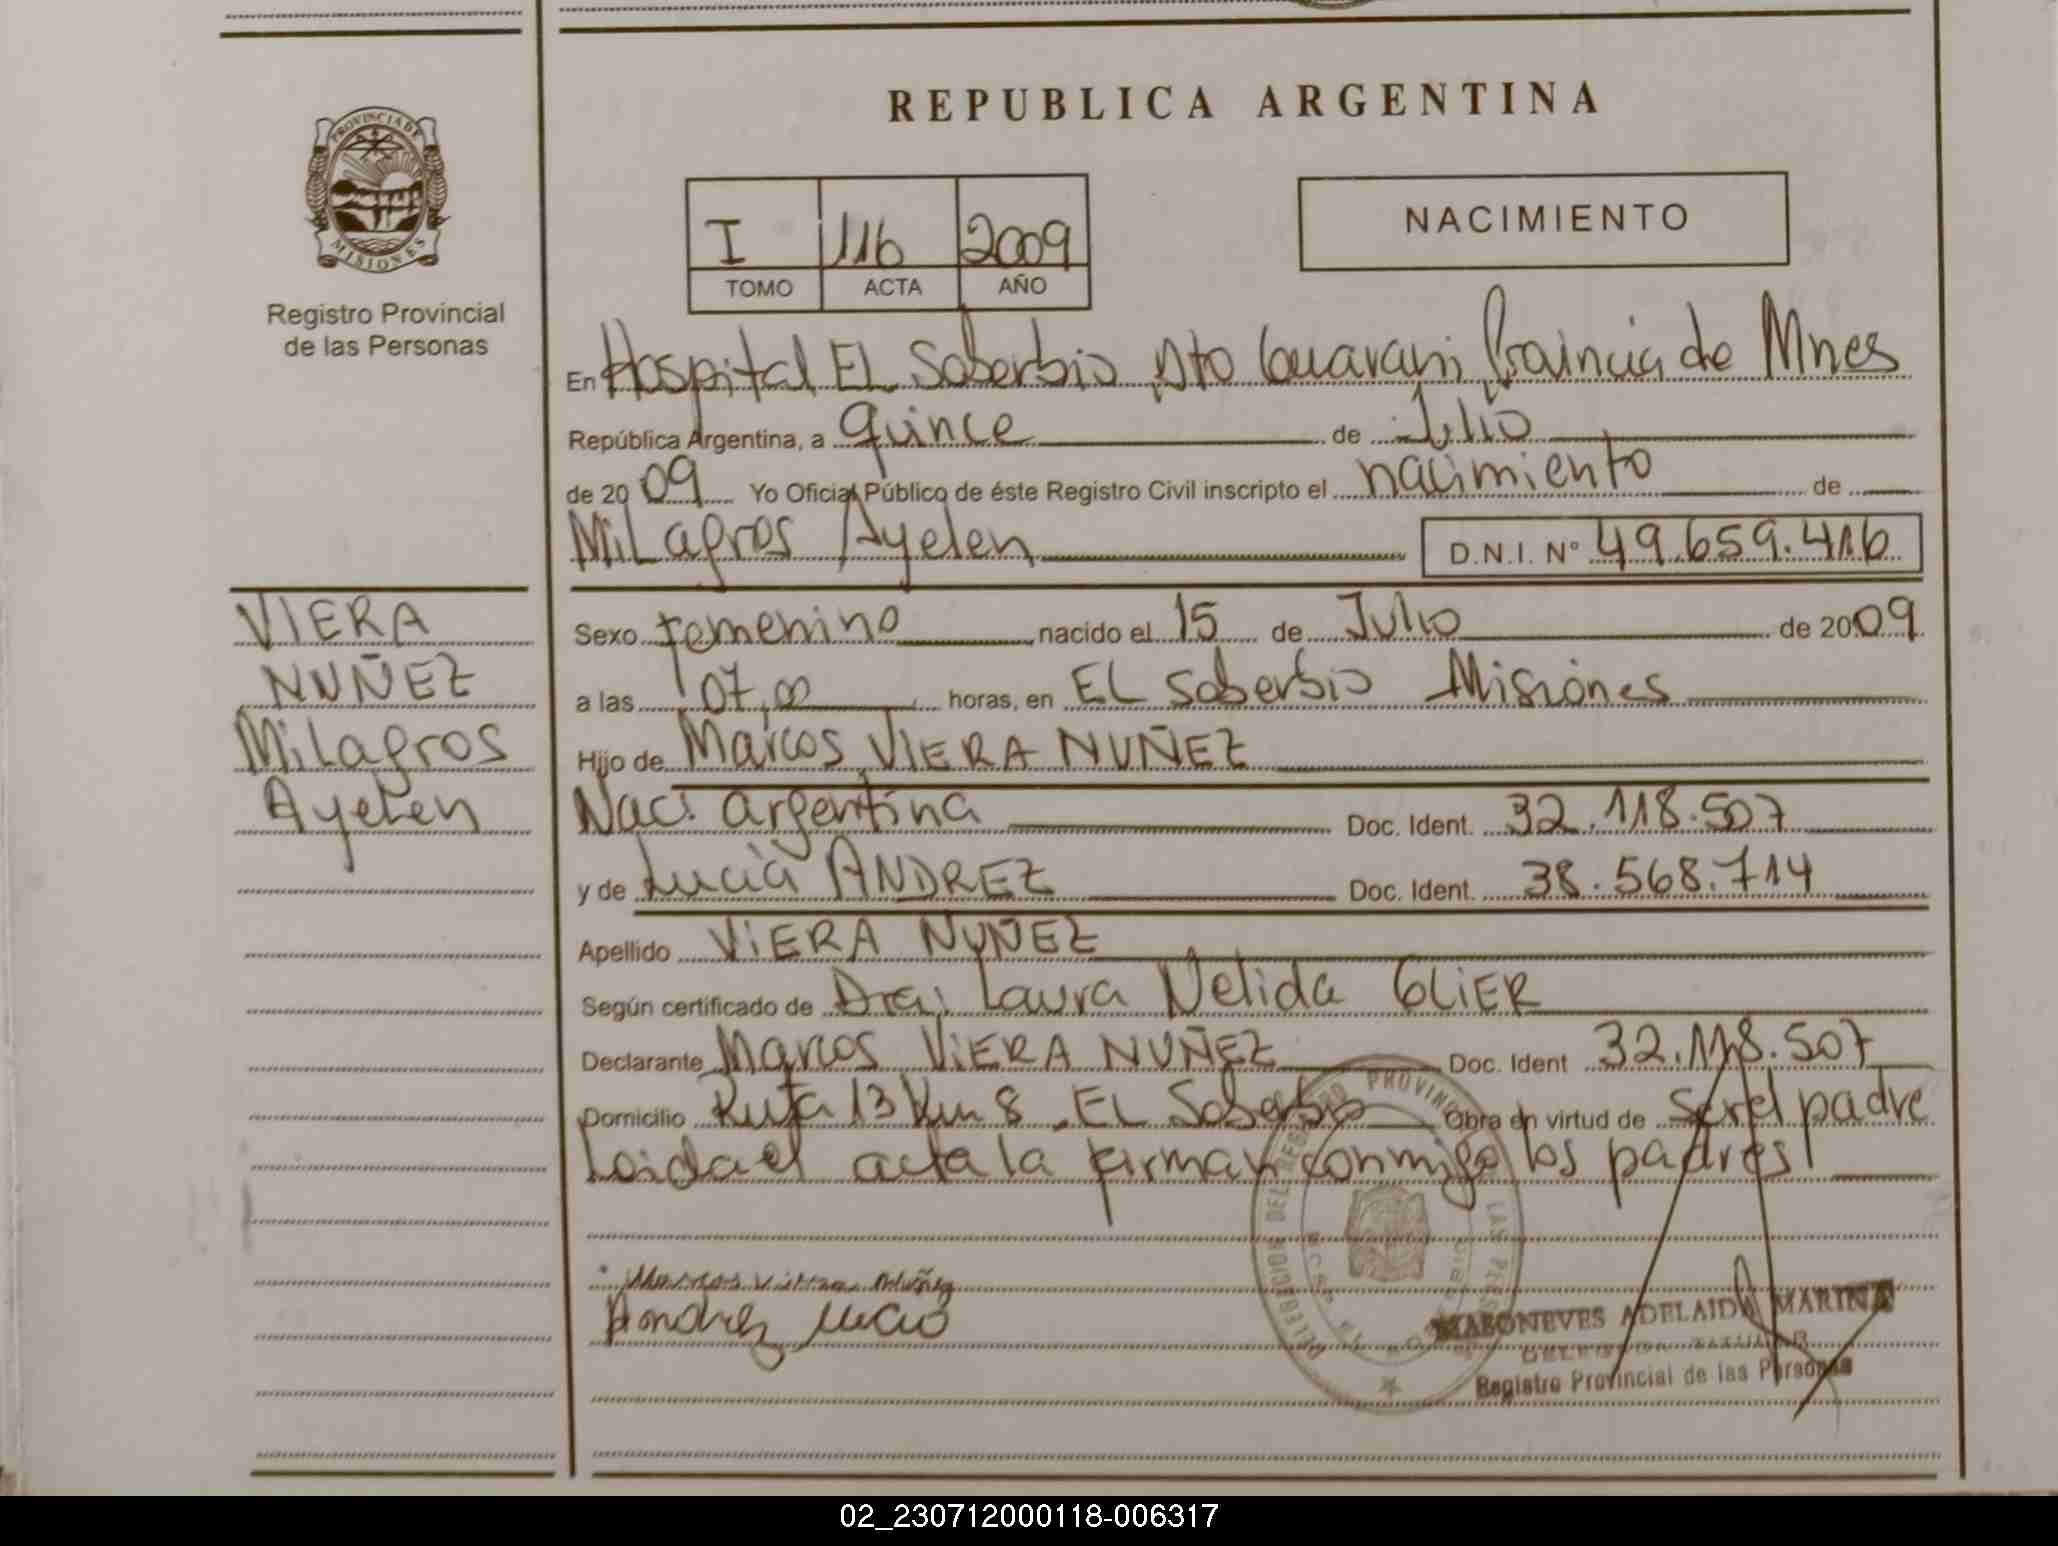 REPUBLICA ARGENTINA
PROVINCIA DE
MISIONES
Registro Provincial
de las Personas
I 116 2009
TOMO ACTA AÑO
NACIMIENTO
En Hospital EL Soberbio Dto Guarani, Provincia de Mnes
República Argentina, a quince de Julio
de 2009 Yo Oficial Público de éste Registro Civil inscripto el nacimiento de
Milagros Ayelen D.N.I. Nº 49.659.416
VIERA
NUÑEZ
Milagros
Ayelen
Sexo femenino nacido el 15 de Julio de 2009
a las 07,00 horas, en EL Soberbio Misiones
Hijo de Marcos VIERA NUÑEZ
Nac. argentina Doc. Ident. 32.118.507
y de Lucia ANDREZ Doc. Ident. 38.568.714
Apellido VIERA NUÑEZ
Según certificado de Dra. Laura Nelida GLIER
Declarante Marcos VIERA NUÑEZ Doc. Ident 32.118.507
Domicilio Ruta 13 Km 8. EL Soberbio Obra en virtud de ser el padre
Leida el acta la firman conmigo los padres
Marcos Viera Nuñez
Andrez Lucia
ADELAIDA MARINA
Registro Provincial de las Personas
02_230712000118-006317